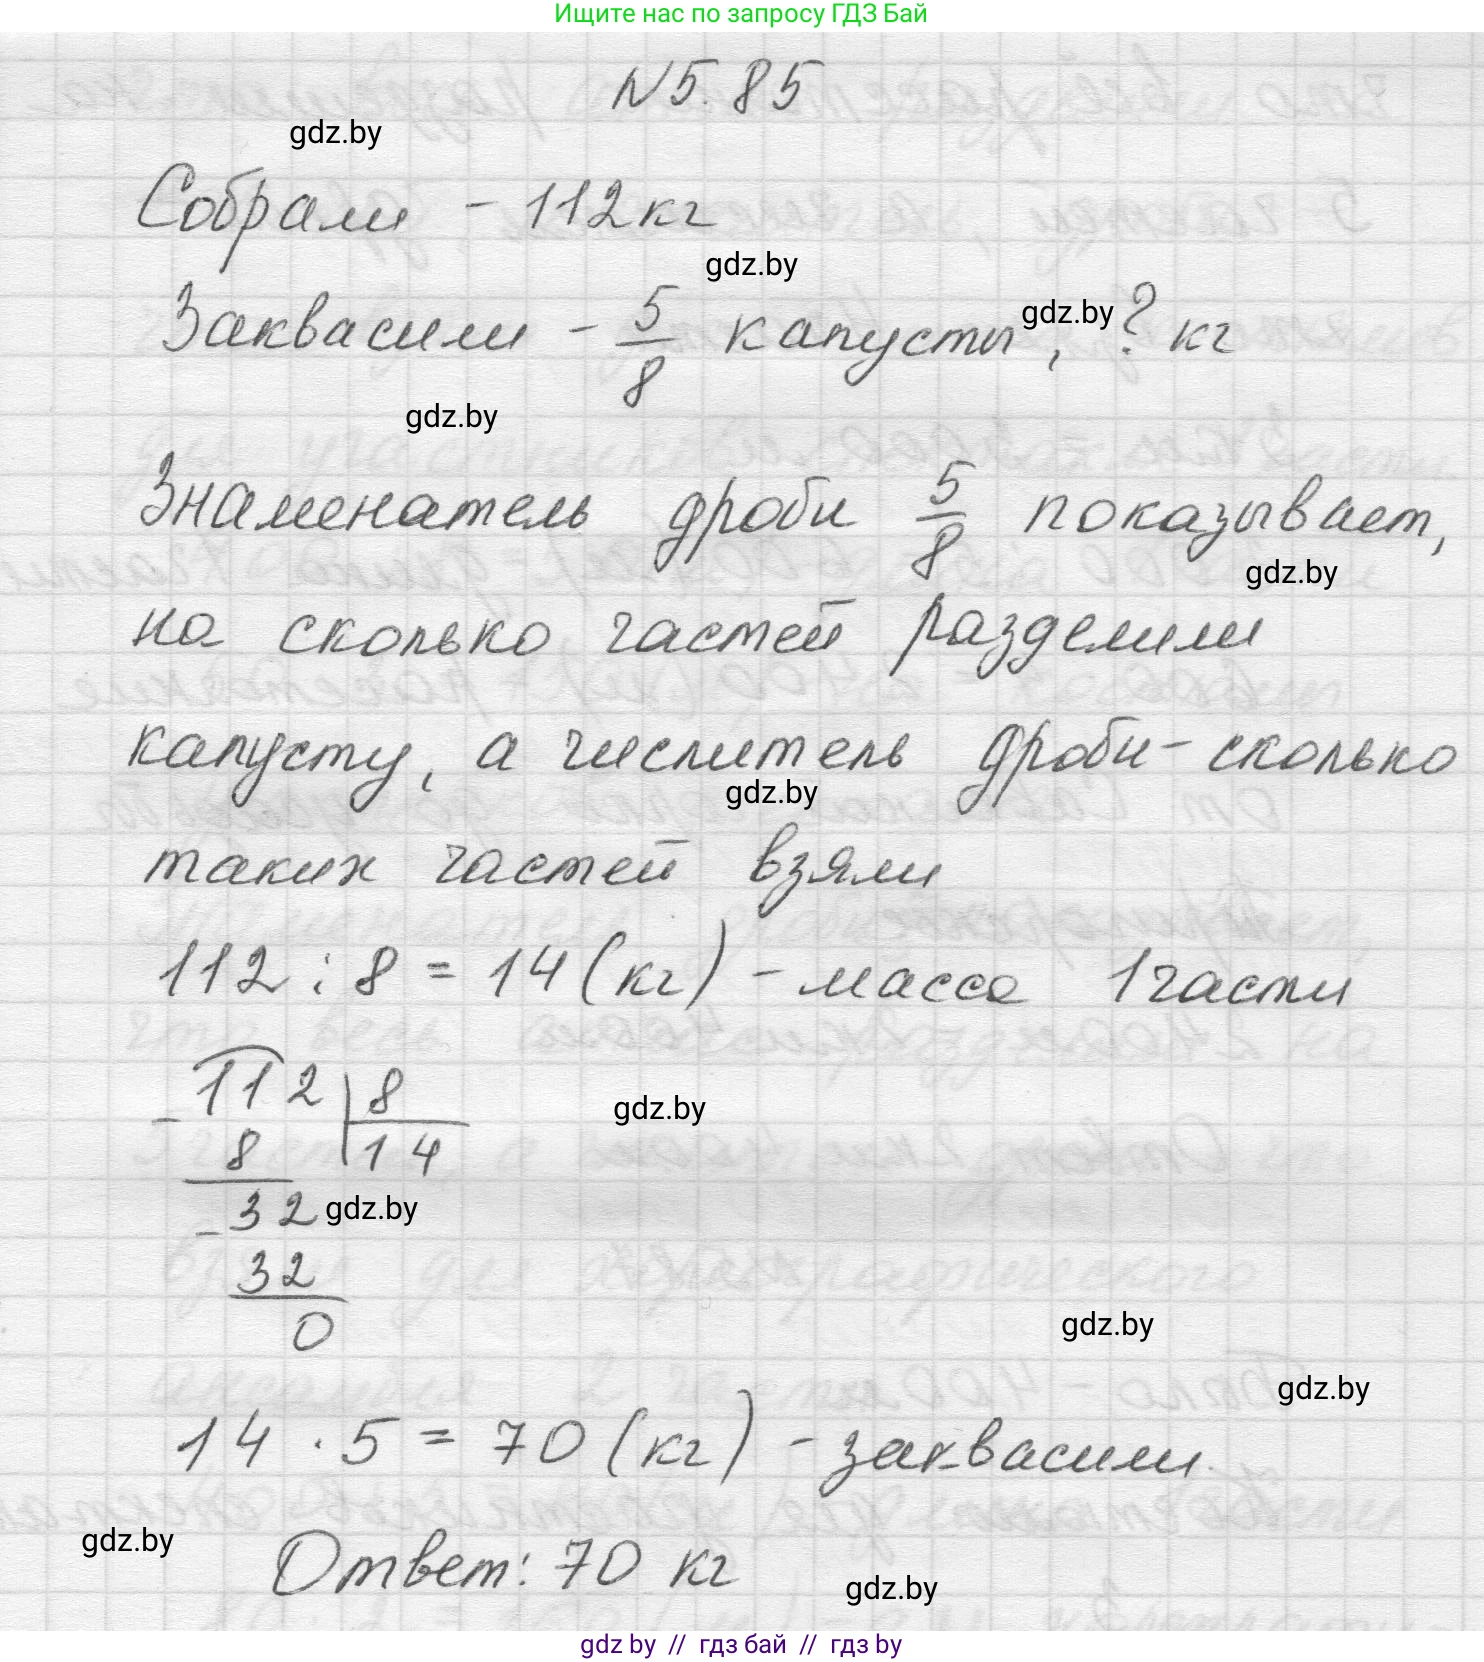 Ищите нас по запросу ГДЗ Бай
N 5.85
gdz.by
Собрали - 112 кг
gdz.by
Заквасили - 5/8 капусты, ? кг
gdz.by
gdz.by
Знаменатель дроби 5/8 показывает,
gdz.by
на сколько частей разделили
капусту, а числитель дроби - сколько
gdz.by
таких частей взяли
112 : 8 = 14 (кг) - масса 1 части
112 | 8
gdz.by
- 8 | 14
- 32
gdz.by
32
0
gdz.by
gdz.by
14 · 5 = 70 (кг) - заквасили.
gdz.by
Ответ: 70 кг
gdz.by
gdz by // гдз бай // гдз by